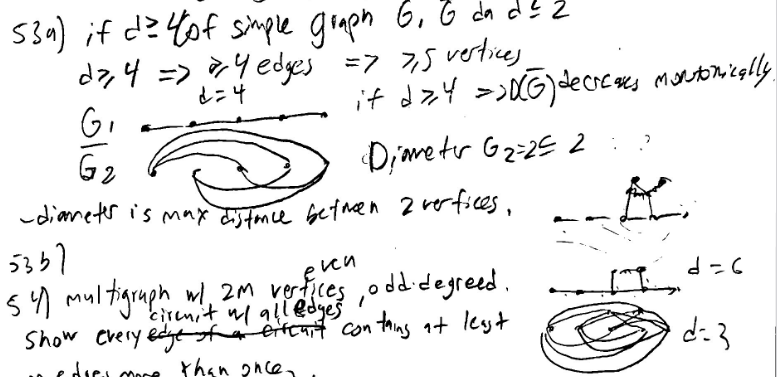 53a) if d≥4 of simple graph G, G̅ da d≤2
d≥4 => ≥4 edges => ≥5 vertices
d=4
if d≥4 => D(G̅) decreases monotonically.
G1
G2
Diameter G2=2≤2 ∴ ?
-diameter is max distance between 2 vertices.
53b)
d=6
even
54) multigraph w/ 2M vertices, odd-degreed.
circuit w/ all edges
Show every edge of a circuit contains at least
d=3
m edges more than once.